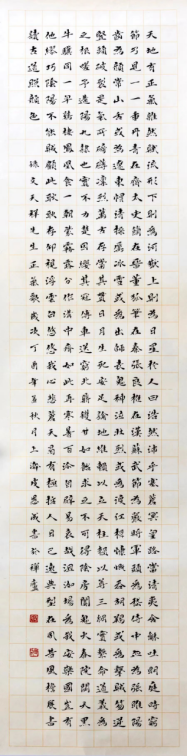 天地有正氣雜然賦流形下則為河嶽上則為日星於人曰浩然沛乎塞蒼冥皇路當清夷含和吐明庭時窮
節乃見一一垂丹青在齊太史簡在晉董狐筆在秦張良椎在漢蘇武節為嚴將軍頭為嵇侍中血為張睢陽
齒為顏常山舌或為遼東帽清操厲冰雪或為出師表鬼神泣壯烈或為渡江楫慷慨吞胡羯或為擊賊笏逆
豎頭破裂是氣所磅礴凜烈萬古存當其貫日月生死安足論地維賴以立天柱賴以尊三綱實繫命道義為
之根嗟予遘陽九隸也實不力楚囚纓其冠傳車送窮北鼎鑊甘如飴求之不可得陰房闃鬼火春院閟天黑
牛驥同一皁雞棲鳳凰食一朝蒙霧露分作溝中瘠如此再寒暑百沴自辟易哀哉沮洳場為我安樂國豈有
他繆巧陰陽不能賊顧此耿耿在仰視浮雲白悠悠我心悲蒼天曷有極哲人日已遠典型在夙昔風檐展書
讀古道照顏色 錄文天祥先生正氣歌歲次丁酉年孟秋月上浣 書於禪廬